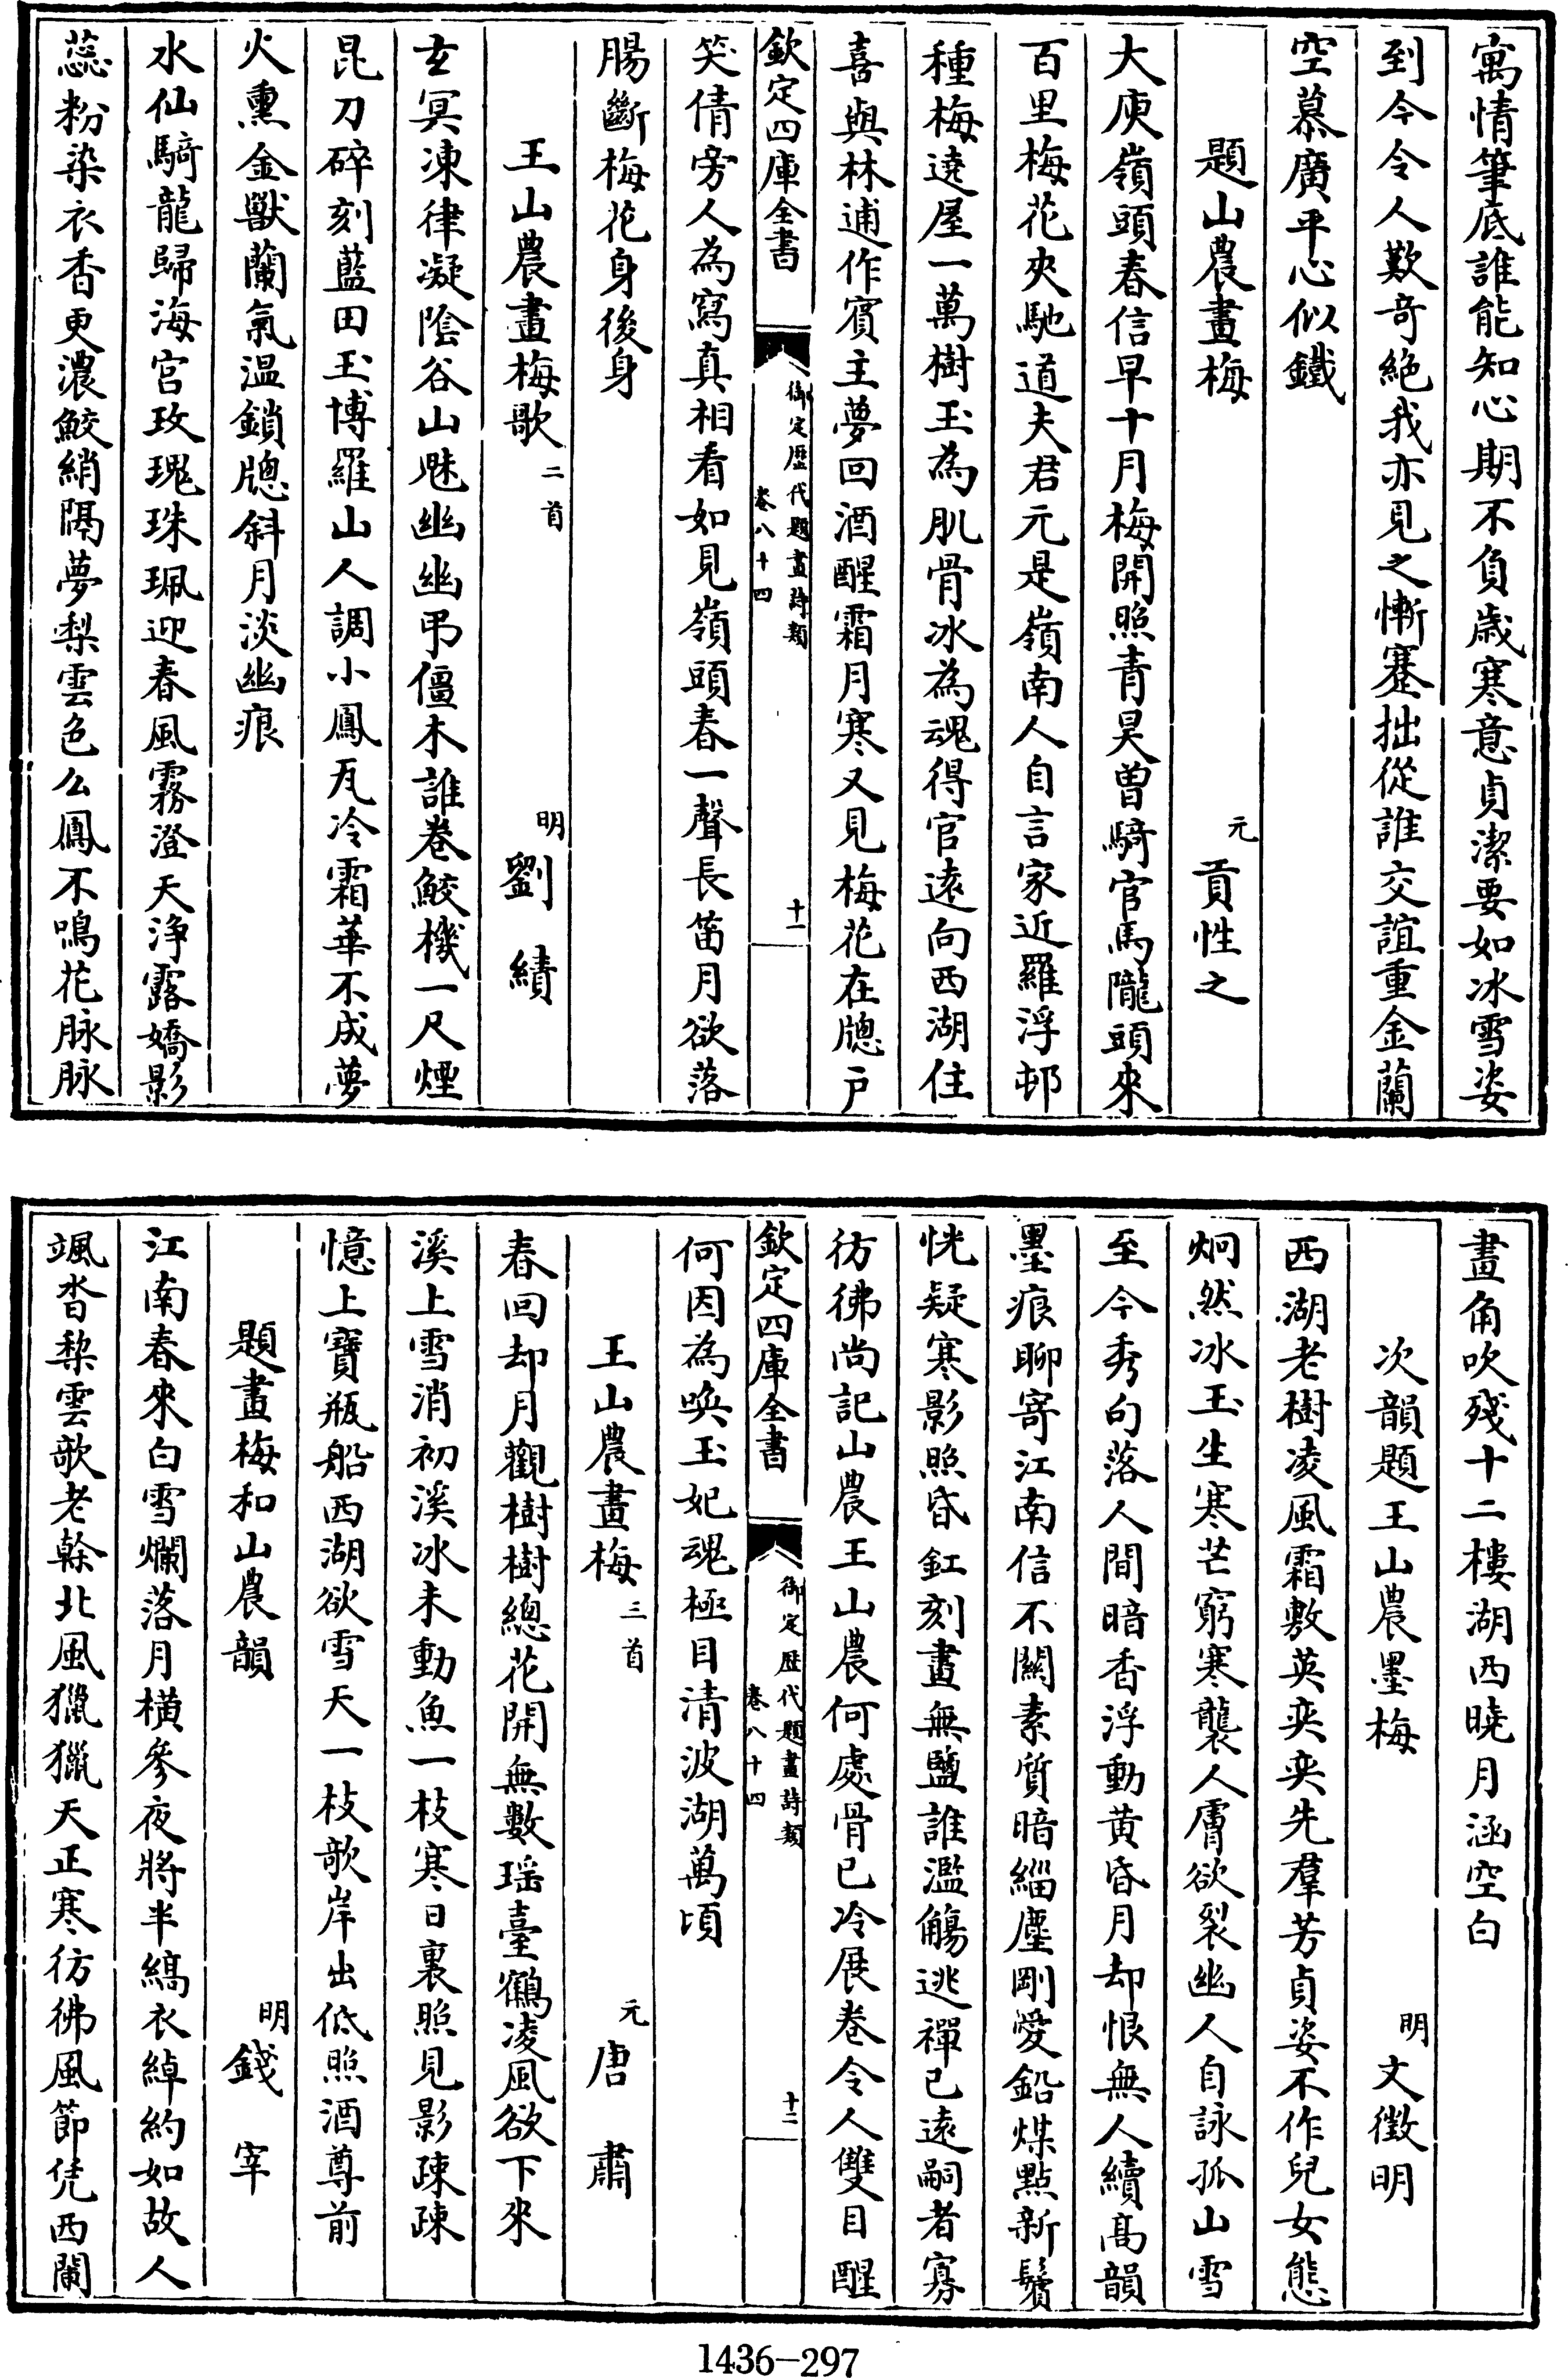 寓情筆底誰能知心期不負歳寒意貞潔要如冰雪姿
到今令人歎奇絶我亦見之慚蹇拙從誰交誼重金蘭
空慕廣平心似鐵
題山農畫梅
元
貢性之
大庾嶺頭春信早十月梅開照青昊曽騎官馬隴頭來
百里梅花夾馳道夫君元是嶺南人自言家近羅浮邨
種梅遶屋一萬樹玉為肌骨冰為魂得官逺向西湖住
喜與林逋作賓主夢回酒醒霜月寒又見梅花在牕户
欽定四庫全書
御定歴代題畫詩類
卷八十四
十一
笑倩旁人為寫真相看如見嶺頭春一聲長笛月欲落
腸斷梅花身後身
王山農畫梅歌
二首
明
劉績
玄冥凍律凝陰谷山魅幽幽弔僵木誰卷鮫機一尺煙
昆刀碎刻藍田玉博羅山人調小鳳瓦冷霜華不成夢
火熏金獸蘭氣温鎖牕斜月淡幽痕
水仙騎龍歸海宫玫瑰珠珮迎春風霧澄天浄露嬌影
蕊粉染衣香更濃鮫綃隔夢梨雲色么鳳不鳴花脉脉
畫角吹殘十二樓湖西曉月涵空白
次韻題王山農墨梅
明
文徵明
西湖老樹凌風霜敷英奕奕先羣芳貞姿不作兒女態
炯然冰玉生寒芒窮寒襲人膚欲裂幽人自詠孤山雪
至今秀句落人間暗香浮動黄昏月却恨無人續髙韻
墨痕聊寄江南信不闗素質暗緇塵剛愛鉛煤點新鬢
恍疑寒影照昏釭刻畫無鹽誰濫觴逃禪已逺嗣者寡
彷彿尚記山農王山農何處骨已冷展卷令人雙目醒
欽定四庫全書
御定歴代題畫詩類
卷八十四
十二
何因為喚玉妃魂極目清波湖萬頃
王山農畫梅
三首
元
唐肅
春回却月觀樹樹總花開無數瑶臺鶴凌風欲下來
溪上雪消初溪冰未動魚一枝寒日裏照見影疎疎
憶上寶瓶船西湖欲雪天一枝歌岸出低照酒尊前
題畫梅和山農韻
明
錢宰
江南春來白雪爛落月横參夜將半縞衣綽約如故人
颯沓棃雲歌老榦北風獵獵天正寒彷彿風節凭西闌
1436-297